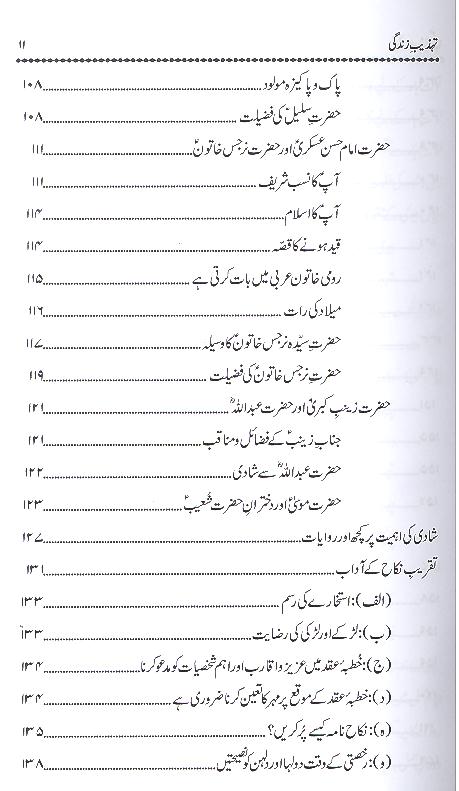 تہذیبِ زندگی ۱۱
پاک و پاکیزہ مولود ۱۰۸
حضرتِ سلیلؑ کی فضیلت ۱۰۸
حضرت امام حسن عسکریؑ اور حضرت نرجس خاتونؑ ۱۱۱
آپؑ کا نسب شریف ۱۱۱
آپؑ کا اسلام ۱۱۴
قید ہونے کا قصّہ ۱۱۴
رومی خاتون عربی میں بات کرتی ہے ۱۱۵
میلاد کی رات ۱۱۶
حضرتِ سیّدہ نرجس خاتونؑ کا وسیلہ ۱۱۷
حضرتِ نرجس خاتونؑ کی فضیلت ۱۱۹
حضرت زینبِ کبریٰؑ اور حضرت عبداللہؓ ۱۲۱
جنابِ زینبؑ کے فضائل و مناقب ۱۲۱
حضرت عبداللہؓ سے شادی ۱۲۲
حضرت موسیٰؑ اور دخترانِ حضرت شعیبؑ ۱۲۳
شادی کی اہمیت پر کچھ اور روایات ۱۲۷
تقریبِ نکاح کے آداب ۱۳۱
(الف): استخارے کی رسم ۱۳۳
(ب): لڑکے اور لڑکی کی رضایت ۱۳۳
(ج): خُطبۂ عقد میں عزیز و اقارب اور اہم شخصیات کو مدعو کرنا ۱۳۴
(د): خطبۂ عقد کے موقع پر مہر کا تعین کرنا ضروری ہے ۱۳۴
(ہ): نکاح نامہ کیسے پُر کریں؟ ۱۳۵
(و): رخصتی کے وقت دولہا اور دلہن کو نصیحتیں ۱۳۸